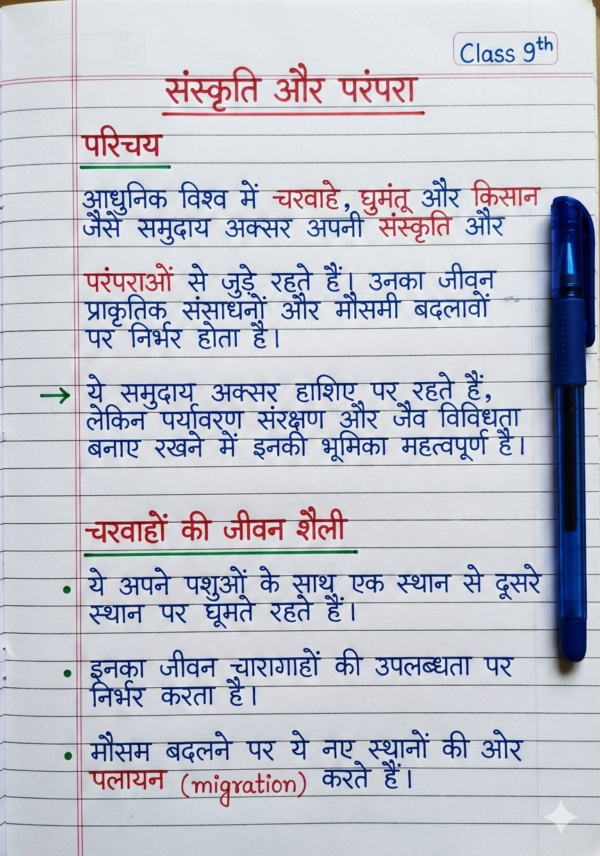 Class 9th
संस्कृति और परंपरा
परिचय
आधुनिक विश्व में चरवाहे, घुमंतू और किसान
जैसे समुदाय अक्सर अपनी संस्कृति और
परंपराओं से जुड़े रहते हैं। उनका जीवन
प्राकृतिक संसाधनों और मौसमी बदलावों
पर निर्भर होता है।
→ ये समुदाय अक्सर हाशिए पर रहते हैं,
लेकिन पर्यावरण संरक्षण और जैव विविधता
बनाए रखने में इनकी भूमिका महत्वपूर्ण है।
चरवाहों की जीवन शैली
• ये अपने पशुओं के साथ एक स्थान से दूसरे
स्थान पर घूमते रहते हैं।
• इनका जीवन चारागाहों की उपलब्धता पर
निर्भर करता है।
• मौसम बदलने पर ये नए स्थानों की ओर
पलायन (migration) करते हैं।